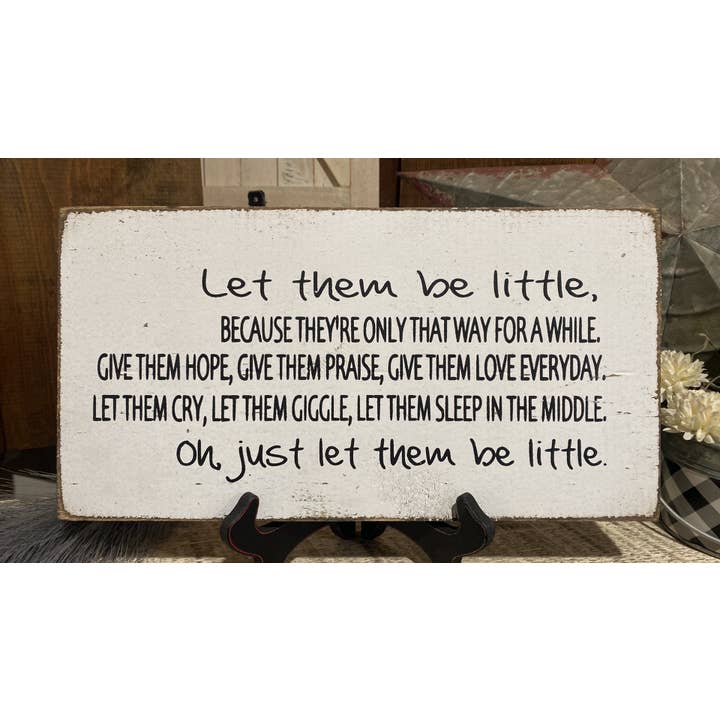 Let them be little,
BECAUSE THEY'RE ONLY THAT WAY FOR A WHILE.
GIVE THEM HOPE, GIVE THEM PRAISE, GIVE THEM LOVE EVERYDAY.
LET THEM CRY, LET THEM GIGGLE, LET THEM SLEEP IN THE MIDDLE.
Oh, just let them be little.